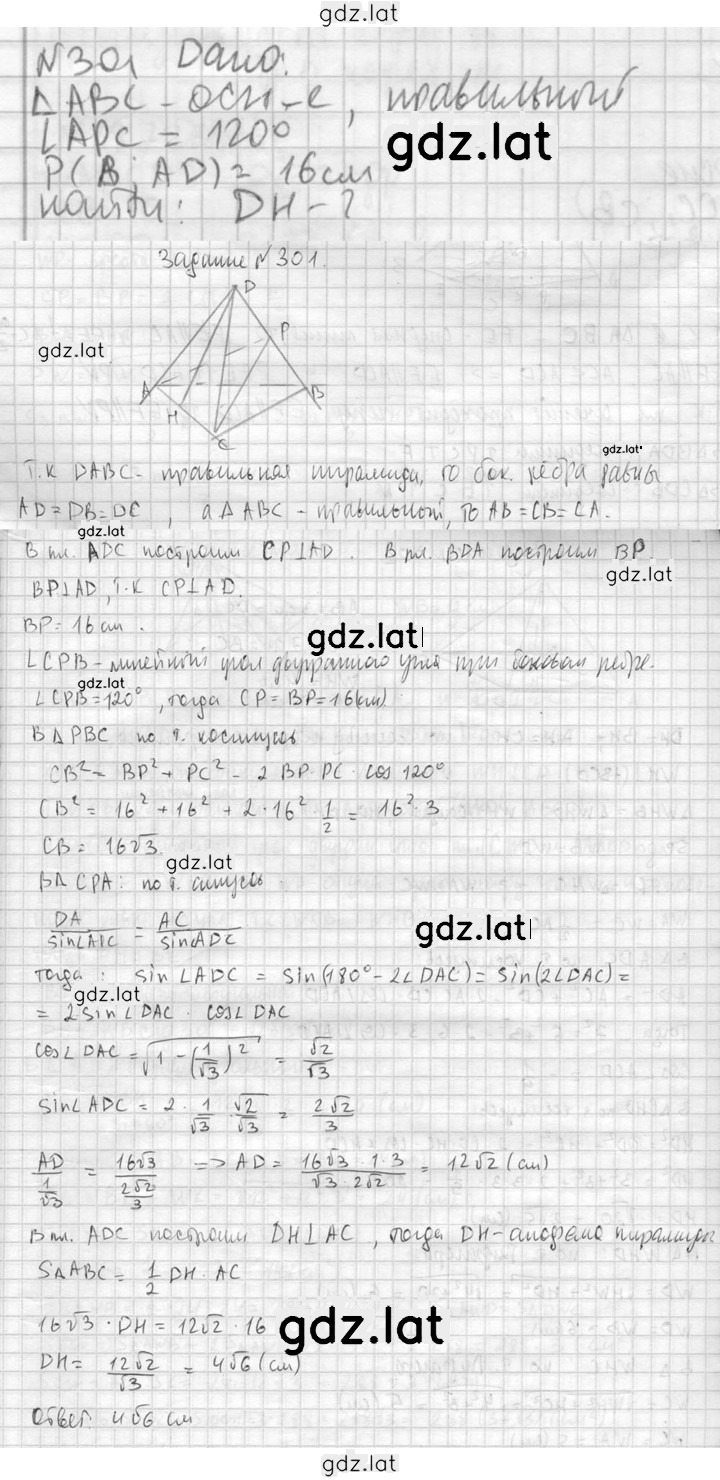 gdz.lat
N301 Дано:
ΔABC - осн-е, правильной
∠APC = 120°
P(B; AD) = 16 см
найти: DH - ?
gdz.lat
Задание N 301.
D
P
gdz.lat
A
B
H
C
gdz.lat
Т.к DABC - правильная пирамида, то бок. рёбра равны
AD = DB = DC, а Δ ABC - правильный, то AB = CB = CA.
gdz.lat
В пл. ADC построим CP⊥AD. В пл. BDA построим BP.
gdz.lat
BP⊥AD, т.к CP⊥AD.
BP = 16 см.
gdz.lat
∠CPB - линейный угол двугранного угла при боковом ребре.
gdz.lat
∠CPB = 120°, тогда CP = BP = 16 (см)
В Δ PBC по т. косинусов
CB² = BP² + PC² - 2 BP·PC · cos 120°
CB² = 16² + 16² + 2·16² · 1/2 = 16²·3
CB = 16√3
gdz.lat
В Δ CPA: по т. синусов
DA/sin∠AIC = AC/sin∠ADC
gdz.lat
тогда: sin ∠ADC = sin(180° - 2∠DAC) = sin(2∠DAC) =
gdz.lat
= 2sin∠DAC · cos∠DAC
cos∠DAC = √1 - (1/√3)² = √2/√3
sin∠ADC = 2 · 1/√3 · √2/√3 = 2√2/3
AD/1/√3 = 16√3/2√2/3 => AD = 16√3·1·3/√3·2√2 = 12√2 (см)
В пл. ADC построим DH⊥AC, тогда DH - апофема пирамиды
SΔABC = 1/2 DH · AC
16√3 · DH = 12√2 · 16
gdz.lat
DH = 12√2/√3 = 4√6 (см)
Ответ: 4√6 см
gdz.lat